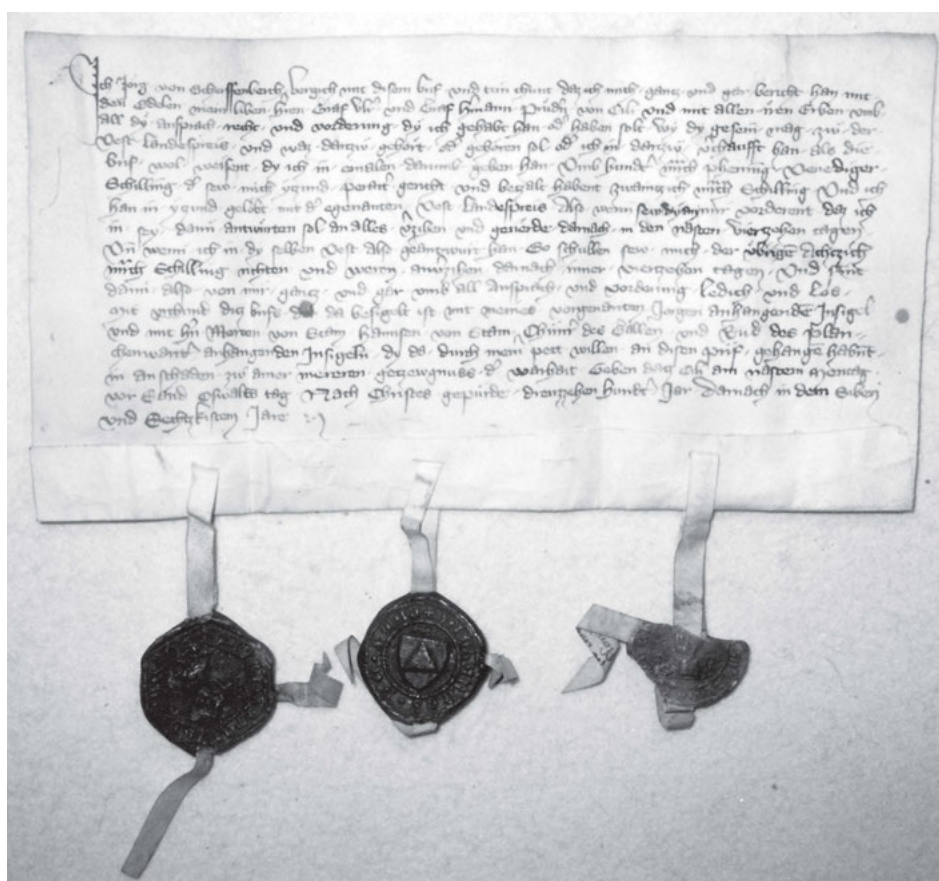 Ich Jörg von Scherffenberch vergich mit disem brif und tůn chunt daz ich mich gantz und gar bericht han mit
den Edelen mein liben hern Graf Ulr und Graf Herman Prüder von Cili und mit allen iren Erben umb
all dy ansprach recht und vordrung dy ich gehabt han oder haben solt wy dy gesein mag zw der
Vest Landespreis und waz dartzů gehört oder gehören sol oder ich in dartzů verchaufft han als die
brif wol weisent dy ich in emalen darumb geben han Umb hundert march phenning Venediger
Schilling der sew mich yczund perait gericht und betzalt habent zwaintzich march Schilling Und ich
han in yczund gelobt mit der egenanten Vest Landespreis Also wenn sew dy an mir vorderent daz ich
in sey dann antwurten sol an alles verziehen und geverde darnach in den nasten viertzehen tagen
Und wenn ich in dy selben Vest also geantwurt han So schullen sew mich der übrigen Achtzich
march Schilling richten und wern an verziehen darnach inner viertzehen tagen Und sind
dann also von mir gantz und gar umb all ansprach und vordrung ledich und los
mit urchund ditz brifs der da besigelt ist mit meinem vorgenanten Jörgen anhangendem Insigel
und mit hern Merten von Stain Hannsen von Stain Chunr des Gallen und Rud des Plan
chenwarter anhangenden Insigeln dy da durch meiner pett willen an disen prif gehangen habent
in an schaden zw aner mereren getzewgnuss der warhait Geben datz Cili am nasten Mentag
vor Sand Oswalts tag Nach Christes gepürde drewtzehen hundert Jar darnach in dem Siben
und Sechtzkistem Jare